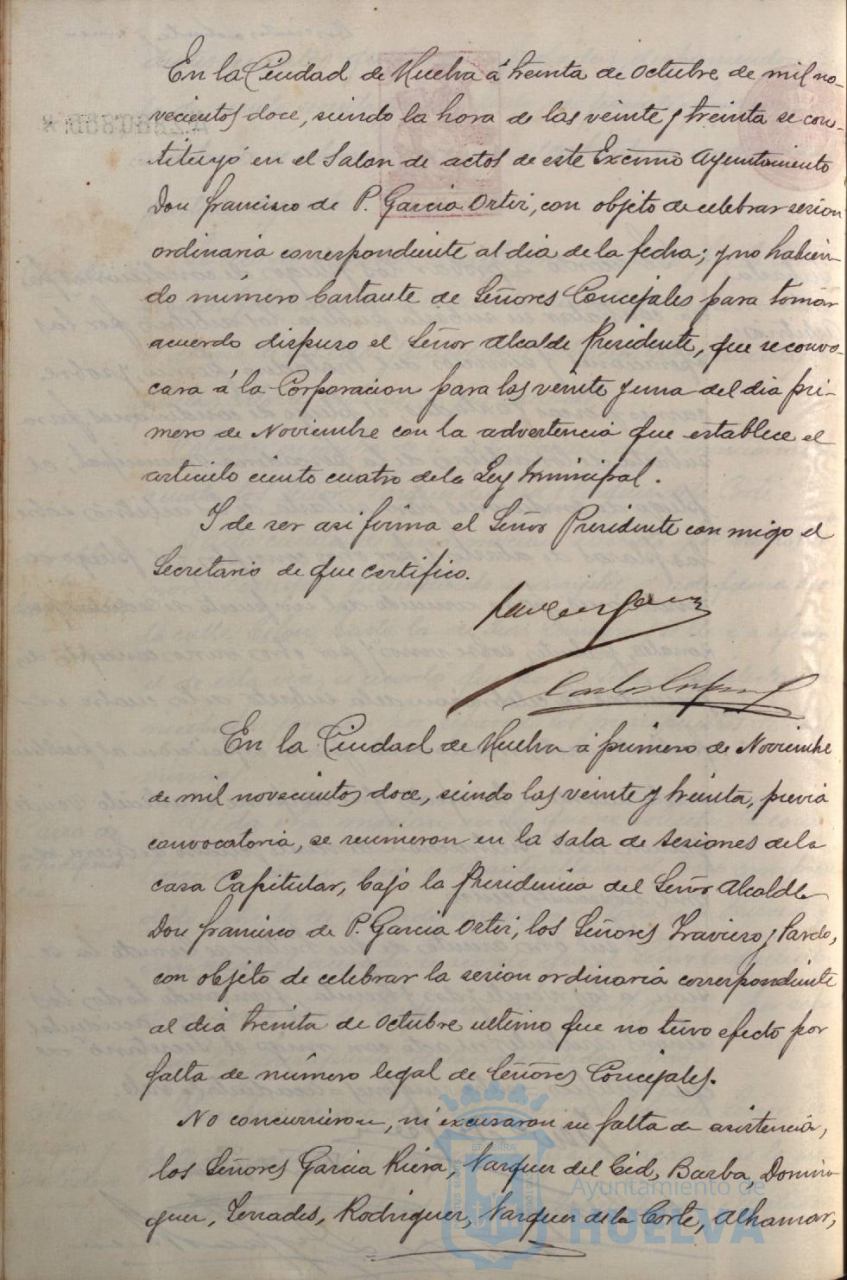 En la Ciudad de Huelva á treinta de Octubre de mil no-
vecientos doce, siendo la hora de las veinte y treinta se cons-
tituyó en el Salon de actos de este Excmo Ayuntamiento
Don Francisco de P. Garcia Ortiz, con objeto de celebrar sesion
ordinaria correspondiente al dia de la fecha; y no habien-
do número bastante de Señores Concejales para tomar
acuerdo dispuso el Señor Alcalde Presidente, que se convo-
cara á la Corporacion para las veinte y una del dia pri-
mero de Noviembre con la advertencia que establece el
articulo ciento cuatro de la Ley Municipal.
Y de ser asi firma el Señor Presidente con migo el
Secretario de que certifico.
En la Ciudad de Huelva á primero de Noviembre
de mil novecientos doce, siendo las veinte y treinta, previa
convocatoria, se reunieron en la sala de sesiones de la
casa Capitular, bajo la Presidencia del Señor Alcalde
Don Francisco de P. Garcia Ortiz, los Señores Travieso y Pardo,
con objeto de celebrar la sesion ordinaria correspondiente
al dia treinta de Octubre ultimo que no tuvo efecto por
falta de número legal de Señores Concejales.
No concurrieron, ni excusaron su falta de asistencia,
los Señores Garcia Riera, Vazquez del Cid, Barba, Domin-
guez, Terrades, Rodriguez, Vazquez de la Corte, Alhamar,
Ayuntamiento de
HUELVA